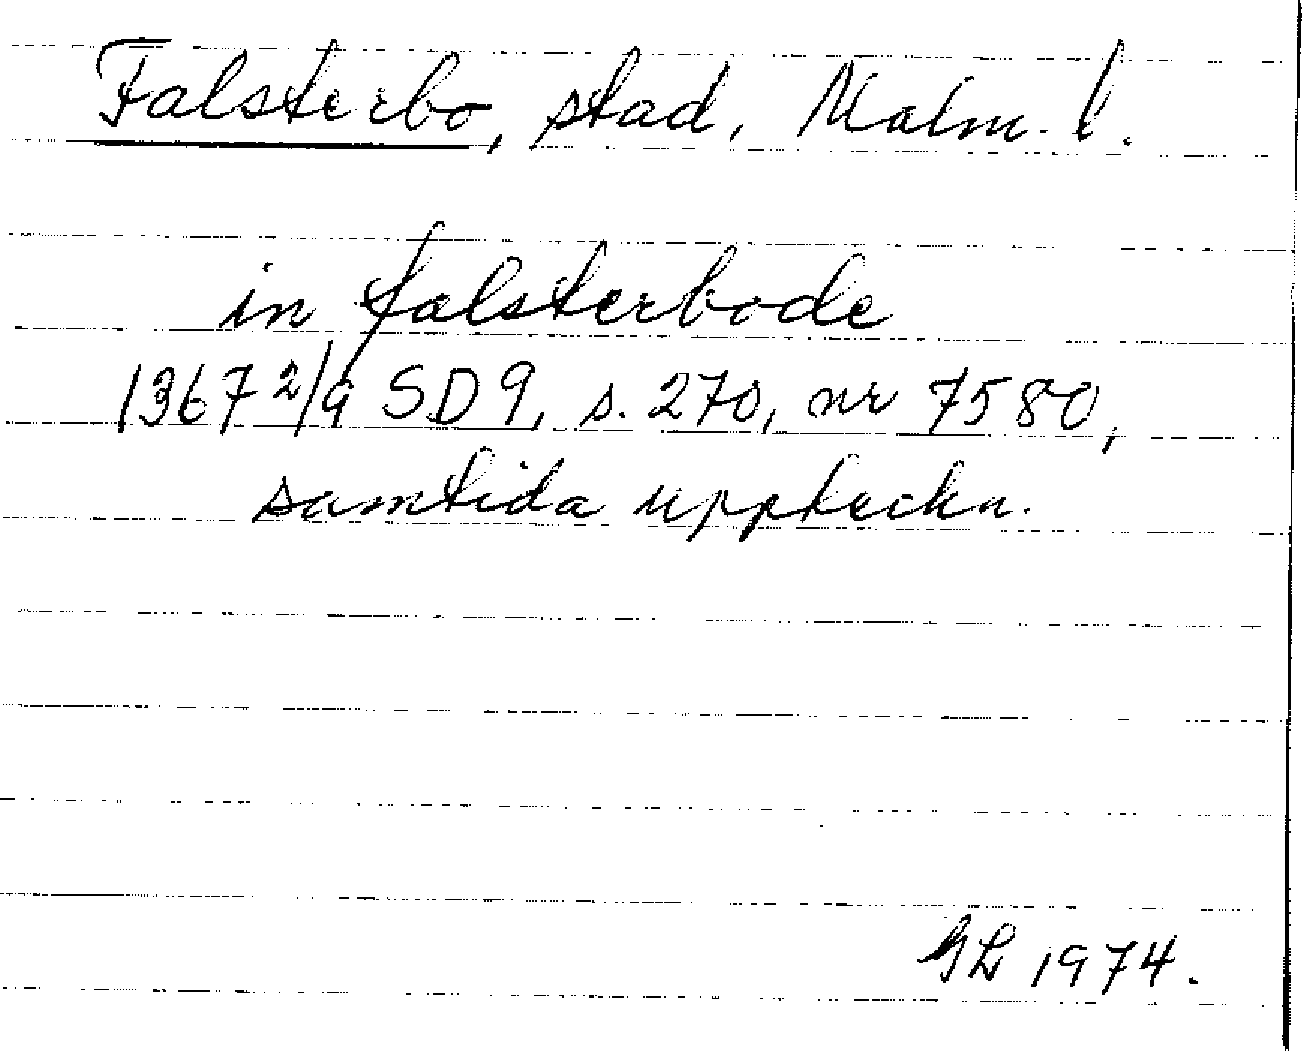 Falsterbo, stad, Malm. l.
in falsterbode
1367 2/9 SD 9, s. 270, nr 7580,
samtida uppteckn.
GL 1974.